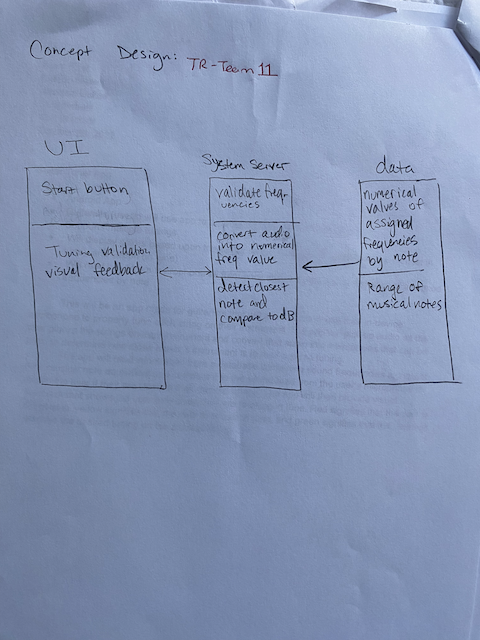 Concept Design: TR-Team 11
UI
Start button
Tuning validation
visual feedback
System Server
validate freq-
uencies
convert audio
into numerical
freq value
detect closest
note and
compare to dB
data
numerical
values of
assigned
frequencies
by note
Range of
musical notes